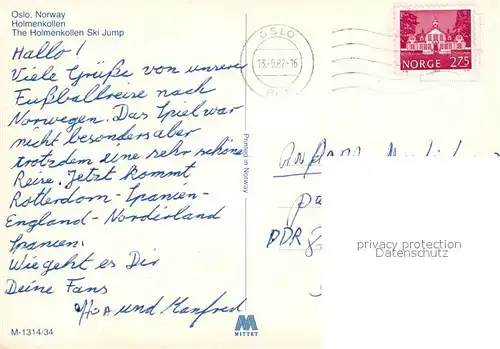 Oslo, Norway
Holmenkollen
The Holmenkollen Ski Jump
Hallo!
Viele Grüße von unserer
Fußballreise nach
Norwegen. Das Spiel war
nicht besonders aber
trotzdem eine sehr schöne
Reise. Jetzt kommt
Rotterdom-Spanien-
England-Nordirland
Spanien.
Wie geht es Dir
Deine Fans
und Manfred
M-1314/34
MITTET
Printed in Norway
OSLO
NORGE 275
DDR
privacy protection
Datenschutz